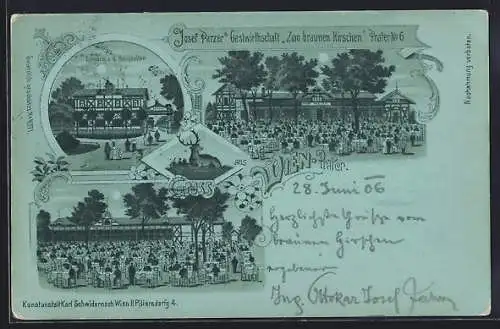 Josef Parzer's Gastwirthschaft „Zum braunen Hirschen" Prater No 6
GRUSS
AUS
WIEN Prater.
28. Juni 06
Herzlichste Grüße vom
braunen Hirschen
ergebenen
Ing. Ottokar Josef
Kunstanstalt Karl Schwidernoch Wien II Pillersdorfg. 4.